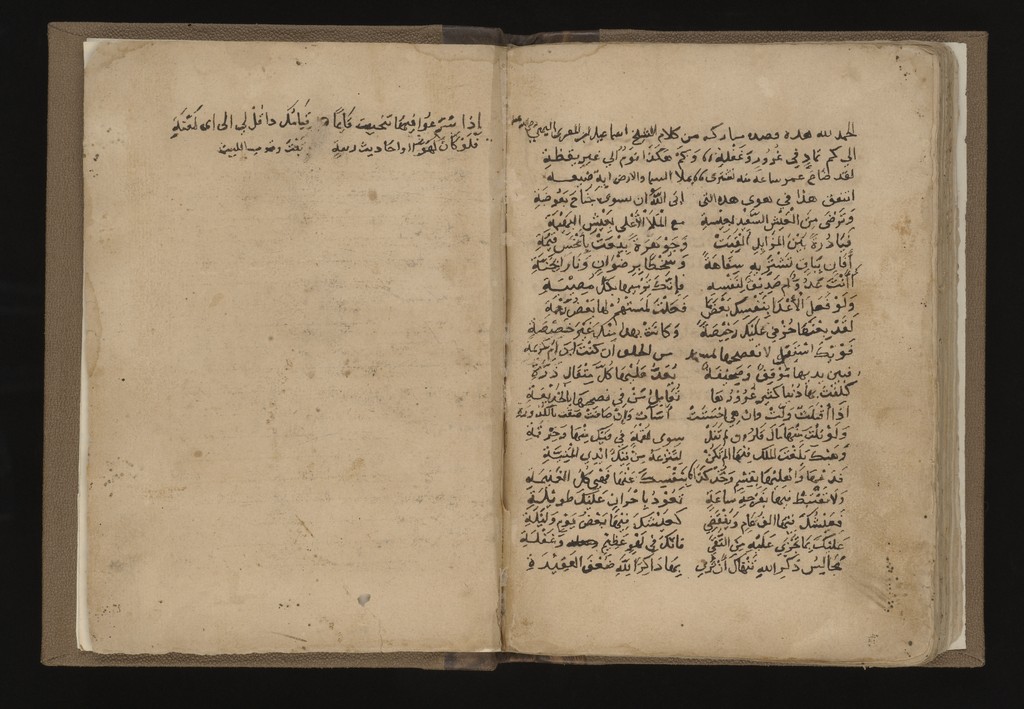 الحمد لله هذه قصيده مباركه من كلام الشيخ اسماعيل بن المقري اليمني
الى كم تماد في غرور وغفلة وكم هكذا نوم الى غير يقظة
لقد ضاع عمر ساعة منه تشترى بملا السما والارض اية ضيعه
اتنفق هذا في هوى هذه التي ابى الله ان تسوى جناح بعوضة
وترضى من العيش السعيد بعيشة مع الملا الاعلى بعيش البهيمة
فيا درة بين المزابل القيت وجوهرة بيعت بابخس قيمة
افان بباق تشتريه سفاهة وسخطا برضوان ونار بجنة
اانت عدو ام صديق لنفسه فانك ترميها بكل مصيبة
ولو فعل الاعدا بنفسك بعض ما فعلت لمستهم لها بعض رحمة
لقد بعتها خزي عليك رخيصة وكانت بهذا منك غير حقيقة
فويك استقل لا تفضحنها بمشهد من الخلق ان كنت ابن ام كريمة
فبين يديها موقف وصحيفة يعد عليها كل مثقال ذرة
كلفت بها دنيا كثير غرورها تعامل من في نصحها بالخديعة
اذا اقبلت ولت وان هي احسنت اسات وان صافت
ولو نلت منها مال قارون لم تنل سوى لقمة في فيك منها وخرقة
وهبك بلغت الملك فيها الم تكن لتنزعه من فيك ايدي المنية
فدعها واهليها بقسم وخذ كذا بنفسك عنها فهي كل الغنيمة
ولا تغتبط منها بفرحة ساعة تعود باحزان عليك طويلة
فعيشك فيها الف عام وينقضي كعيشك فيها بعض يوم وليلة
عليك بما تجزى عليه من التقى فانك في لهو عظيم وغفلة
مجالس ذكر الله تنهاك ان ترى بها ذاكرا لله ضعف العقيدة
اذا شرعوا فيها تحيت قائما قيامك ذا قل لي الى اي لعنة
فلو كان لهوا او احاديث ريبة